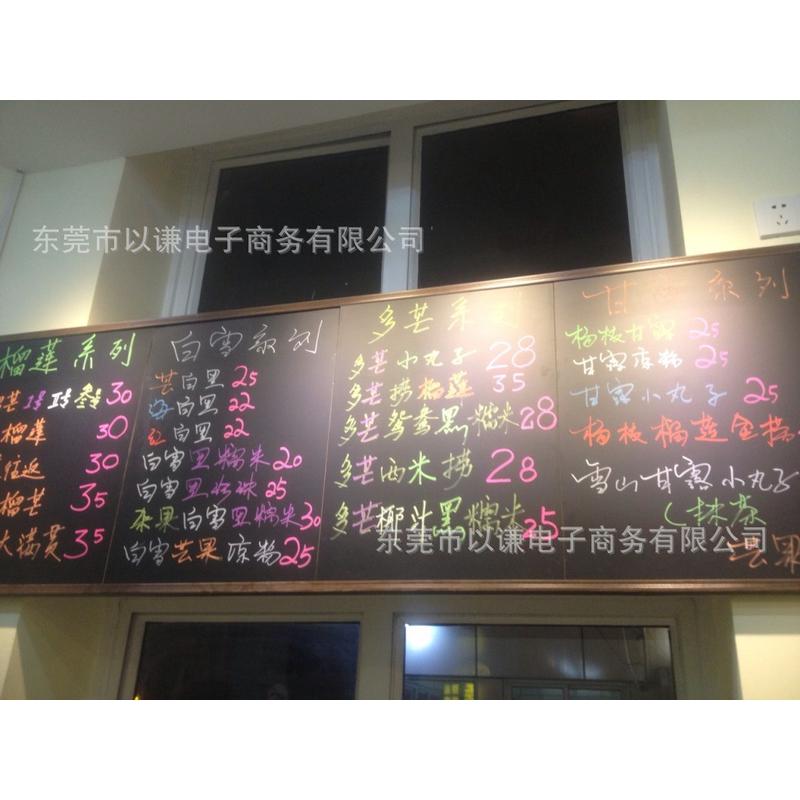 东莞市以谦电子商务有限公司
榴莲系列
30
榴莲 30
30
榴芒 35
大满贯 35
白雪系列
芒白黑 25
白黑 22
红白黑 22
白雪黑糯米 20
白雪黑珍珠 25
杂果白雪黑糯米 30
白雪芒果凉粉 25
多芒系列
多芒小丸子 28
多芒捞榴莲 35
多芒鸳鸯黑糯米 28
多芒西米捞 28
多芒椰汁黑糯米 25
甘露系列
杨枝甘露 25
甘露凉粉 25
甘露小丸子 25
杨枝榴莲金捞
雪山甘露小丸子
(抹茶
芒果
东莞市以谦电子商务有限公司